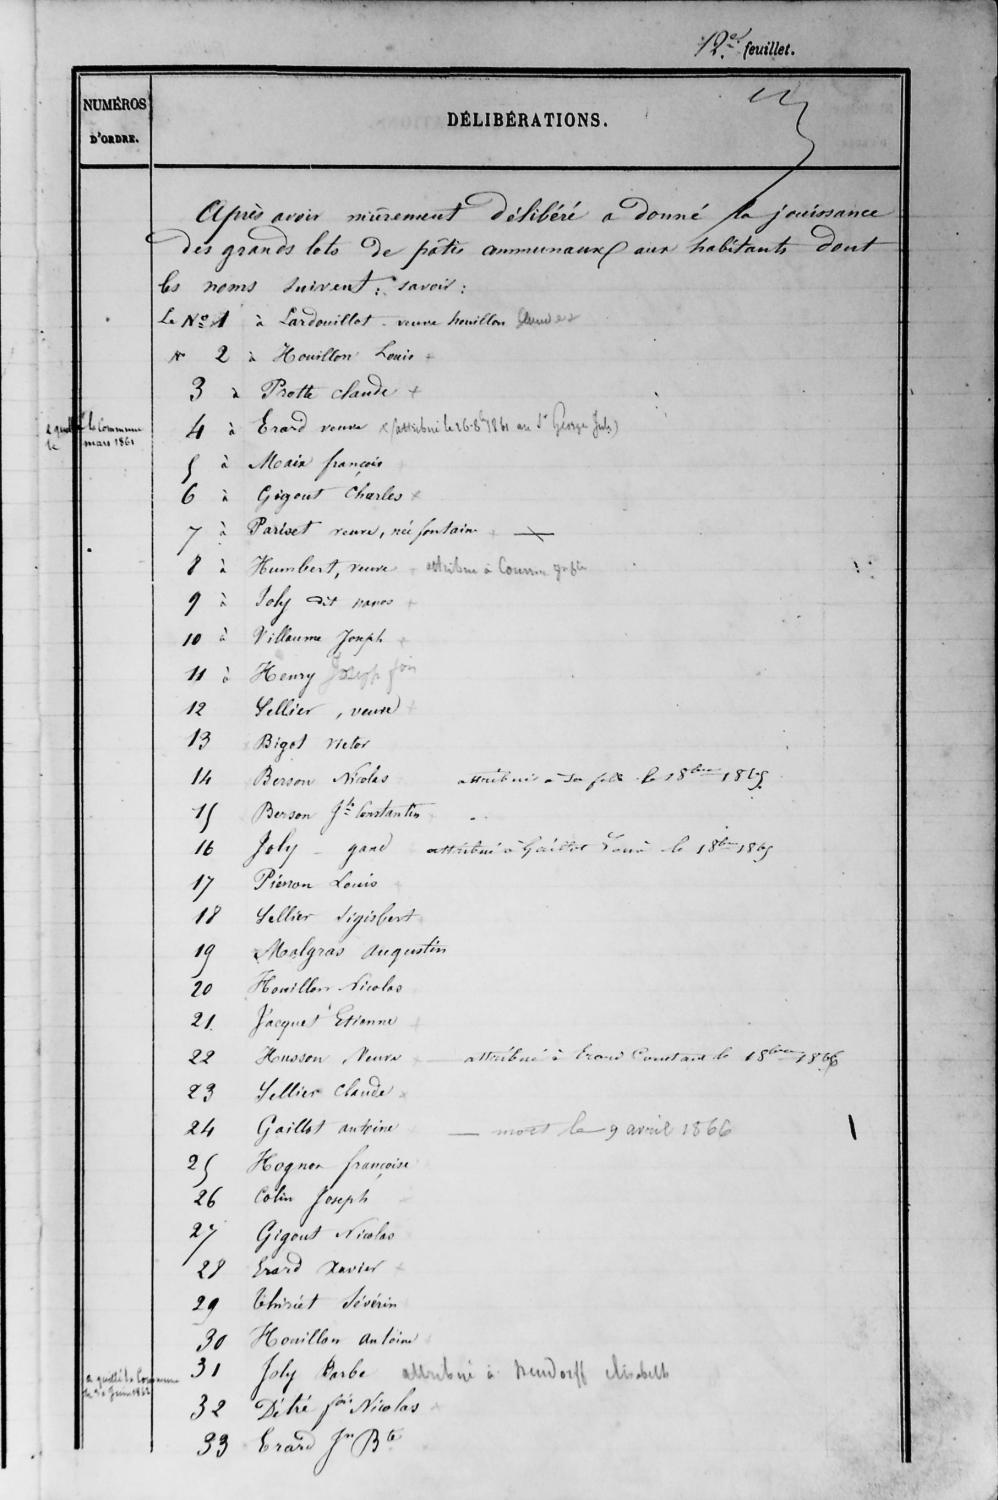 12.e feuillet.
NUMÉROS
D'ORDRE.
DÉLIBÉRATIONS.
Après avoir mûrement délibéré a donné la jouissance
des grands lots de pâtis communaux aux habitants dont
les noms suivent : savoir :
Le No 1 à Lardouillot - veuve houillon
N 2 à Houillon Louis +
3 à Protte claude +
a quitté la Commune
le mars 1861
4 à Erard veuve x (attribué le 26 8bre 1861 au Sr George Jules)
5 à Maix françois
6 à Gigout Charles x
7 à Pariset veuve, née fontaine
8 à Humbert, veuve attribué à
9 à Joly dit
10 à Villaume Joseph +
11 à Henry Joseph
12 Sellier, veuve +
13 Bigot victor
14 Berson Nicolas attribué à le 18bre 1865
15 Berson Jh Constantin
16 Joly - attribué à Gaillot le 18bre 1865
17 Pierron Louis
18 Sellier Sigisbert
19 Malgras augustin
20 Houillon Nicolas
21. Jacquet Etienne +
22 Husson Veuve + attribué à Erard Constant le 18bre 1866
23 Sellier Claude x
24 Gaillot antoine — mort le 9 avril 1866
25 Hognon françoise
26 Colin Joseph
27 Gigout Nicolas
28 Erard Xavier +
29 thiriet Sévérin
30 Houillon antoine
a quitté la Commune
le Juin 1862
31 Joly Barbe attribué à Neudorff elisabeth
32 Détré Nicolas
33 Erard Jn Bte